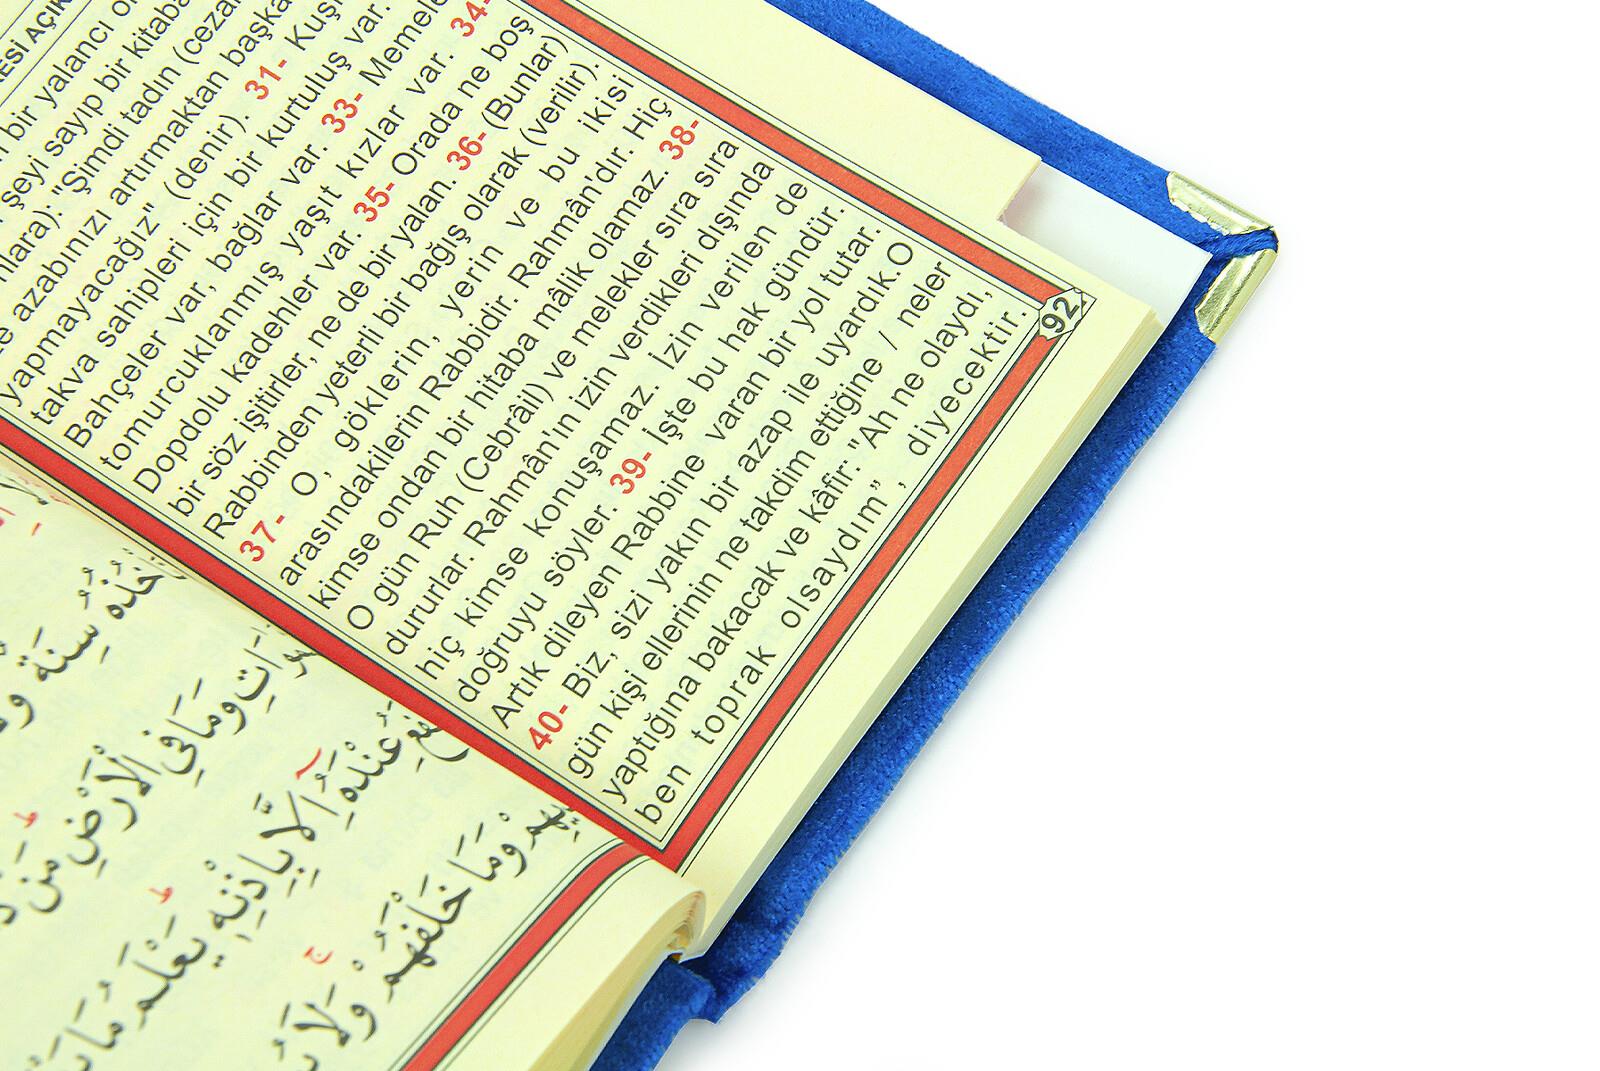 RESİ AÇIK
bir yalancı
şeyi sayıp bir kitaba
"Şimdi tadın (ceza
azabınızı artırmaktan başka
yapmayacağız" (denir). 31- Kuş
takva sahipleri için bir kurtuluş var.
Bahçeler var, bağlar var. 33- Memele
tomurcuklanmış yaşıt kızlar var. 34-
Dopdolu kadehler var. 35- Orada ne boş
bir söz işitirler, ne de bir yalan. 36- (Bunlar)
Rabbinden yeterli bir bağış olarak (verilir).
37- O, göklerin, yerin ve bu ikisi
arasındakilerin Rabbidir. Rahmân'dır. Hiç
kimse ondan bir hitaba mâlik olamaz. 38-
O gün Ruh (Cebrâil) ve melekler sıra sıra
dururlar. Rahmân'ın izin verdikleri dışında
hiç kimse konuşamaz. İzin verilen de
doğruyu söyler. 39- İşte bu hak gündür.
Artık dileyen Rabbine varan bir yol tutar.
40- Biz, sizi yakın bir azap ile uyardık.O
gün kişi ellerinin ne takdim ettiğine / neler
yaptığına bakacak ve kâfir: "Ah ne olaydı,
ben toprak olsaydım", diyecektir.
92
سِنَةٌ
وَمَا فِي الْأَرْضِ مَنْ
عِنْدَهُ إِلَّا بِإِذْنِهِ يَعْلَمُ مَا
وَمَا خَلْفَهُمْ وَلَا